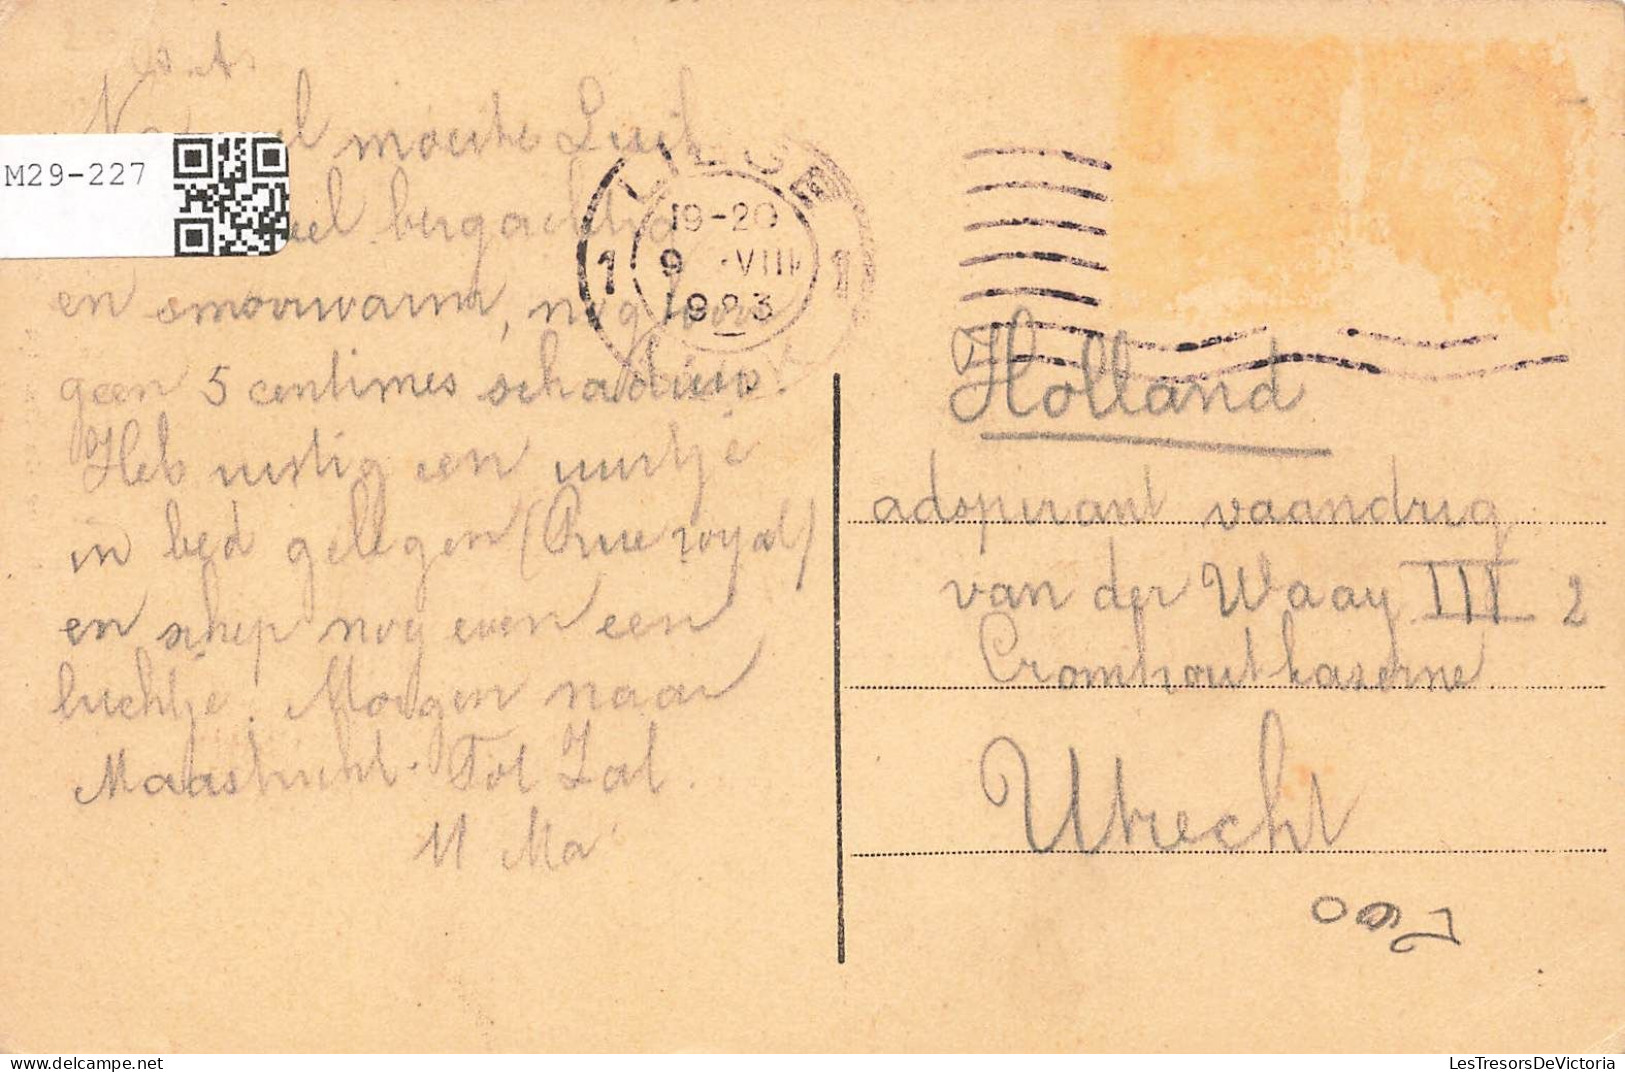 M29-227
moeite Luik
bergachtig
en smoorwarm, nog voor
geen 5 centimes schaduw!
Heb rustig een uurtje
in bed gelegen (Rue royal)
en schep nog even een
luchtje. Morgen naar
Maastricht. Tot Zat.
LIEGE
1 19-20 1
9 ·VIII
1923
Holland
adspirant vaandrig
van der Waay III 2
Cromhoutkaserne
Utrecht
LesTresorsDeVictoria